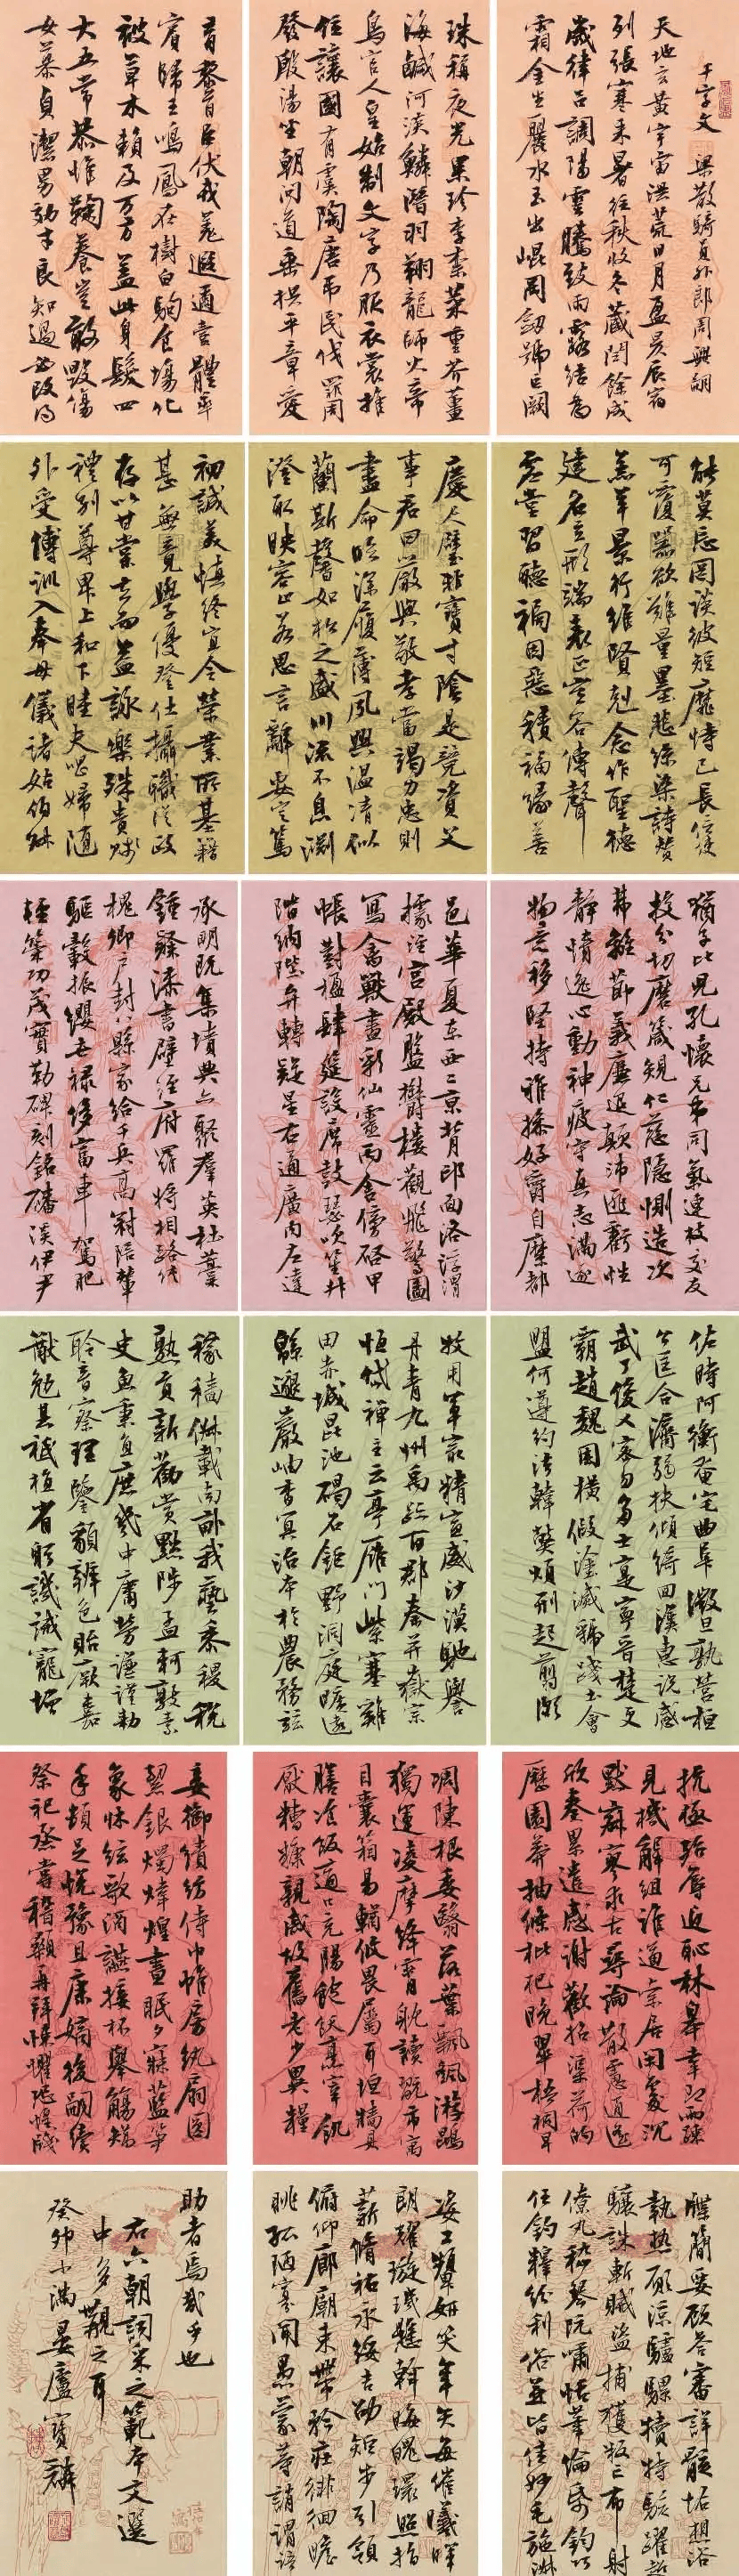 千字文 梁散騎員外郎周興嗣
天地玄黃宇宙洪荒日月盈昃辰宿
列張寒來暑往秋收冬藏閏餘成
歲律呂調陽雲騰致雨露結為
霜金生麗水玉出崐岡劒號巨闕
珠稱夜光果珍李柰菜重芥薑
海鹹河淡鱗潛羽翔龍師火帝
鳥官人皇始制文字乃服衣裳推
位讓國有虞陶唐弔民伐罪周
發殷湯坐朝問道垂拱平章愛
育黎首臣伏戎羌遐邇壹體率
賓歸王鳴鳳在樹白駒食場化
被草木賴及万方蓋此身髮四
大五常恭惟鞠養豈敢毀傷
女慕貞潔男效才良知過必改得
能莫忘罔談彼短靡恃己長信使
可覆器欲難量墨悲絲染詩贊
羔羊景行維賢剋念作聖德
建名立形端表正空谷傳聲
虛堂習聽禍因惡積福緣善
慶尺璧非寶寸陰是競資父
事君曰嚴與敬孝當竭力忠則
盡命臨深履薄夙興温凊似
蘭斯馨如松之盛川流不息淵
澄取映容止若思言辭安定篤
初誠美慎終宜令榮業所基籍
甚無竟學優登仕攝職從政
存以甘棠去而益詠樂殊貴賤
禮別尊卑上和下睦夫唱婦隨
外受傅訓入奉母儀諸姑伯叔
猶子比兒孔懷兄弟同氣連枝交友
投分切磨箴規仁慈隱惻造次
弗離節義廉退顛沛匪虧性
靜情逸心動神疲守真志滿逐
物意移堅持雅操好爵自縻都
邑華夏東西二京背邙面洛浮渭
據涇宮殿盤鬱樓觀飛驚圖
寫禽獸畫彩仙靈丙舍傍啓甲
帳對楹肆筵設席鼓瑟吹笙升
階納陛弁轉疑星右通廣內左達
承明既集墳典亦聚羣英杜稾
鍾隸漆書壁經府羅將相路俠
槐卿戶封八縣家給千兵高冠陪輦
驅轂振纓世祿侈富車駕肥
輕策功茂實勒碑刻銘磻溪伊尹
佐時阿衡奄宅曲阜微旦孰營桓
公匡合濟弱扶傾綺回漢惠說感
武丁俊乂密勿多士寔寧晉楚更
霸趙魏困橫假途滅虢踐土會
盟何遵約法韓弊煩刑起翦頗
牧用軍最精宣威沙漠馳譽
丹青九州禹跡百郡秦并嶽宗
恒岱禪主云亭雁門紫塞雞
田赤城昆池碣石鉅野洞庭曠遠
緜邈巖岫杳冥治本於農務茲
稼穡俶載南畝我藝黍稷稅
熟貢新勸賞黜陟孟軻敦素
史魚秉直庶幾中庸勞謙謹勅
聆音察理鑒貌辨色貽厥嘉
猷勉其祗植省躬譏誡寵增
抗極殆辱近恥林皋幸即兩疏
見機解組誰逼索居閑處沉
默寂寥求古尋論散慮逍遙
欣奏累遣慼謝歡招渠荷的
歷園莽抽條枇杷晚翠梧桐早
凋陳根委翳落葉飄颻游鵾
獨運凌摩絳霄耽讀翫市寓
目囊箱易輶攸畏屬耳垣牆具
膳飡飯適口充腸飽飫烹宰飢
厭糟糠親戚故舊老少異糧
妾御績紡侍巾帷房紈扇圓
絜銀燭煒煌晝眠夕寐藍筍
象牀絃歌酒讌接杯舉觴矯
手頓足悅豫且康嫡後嗣續
祭祀烝嘗稽顙再拜悚懼恐惶牋
牒簡要顧答審詳骸垢想浴
執熱願涼驢騾犢特駭躍超
驤誅斬賊盜捕獲叛亡布射
僚丸嵇琴阮嘯恬筆倫紙鈞巧
任釣釋紛利俗並皆佳妙毛施淑
姿工顰妍笑年矢每催曦暉
朗耀璇璣懸斡晦魄環照指
薪脩祜永綏吉劭矩步引領
俯仰廊廟束帶矜莊徘徊瞻
眺孤陋寡聞愚蒙等誚謂語
助者焉哉乎也
右六朝詞采之範本文選
中多觀之耳
癸卯小滿晏廬寶麟